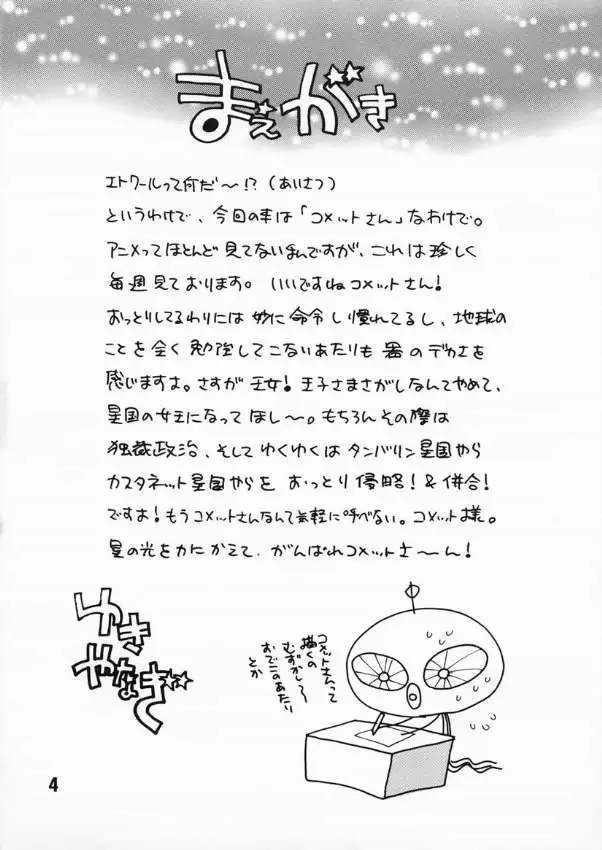 まえがき
エトワールって何だ〜!?(あいさつ)
というわけで、今回の本は「コメットさん」なわけで。
アニメってほとんど見てないまんですが、これは珍しく
毎週見ております。いいですねコメットさん!
おっとりしてるわりには妙に命令し慣れてるし、地球の
ことを全く勉強してこないあたりも器のデカさを
感じますよ。さすが王女!王子さまさがしなんてやめて、
星国の女王になってほし〜。もちろんその際は
独裁政治、そしてゆくゆくはタンバリン星国やら
カスタネット星国やらをおっとり侵略!&併合!
ですよ!もうコメットさんなんて気軽に呼べない。コメット様。
星の光を力にかえて、がんばれコメットさ〜ん!
コメットさんって
描くの
むずかし〜
おでこのあたり
とか
ゆき
やなぎ
4